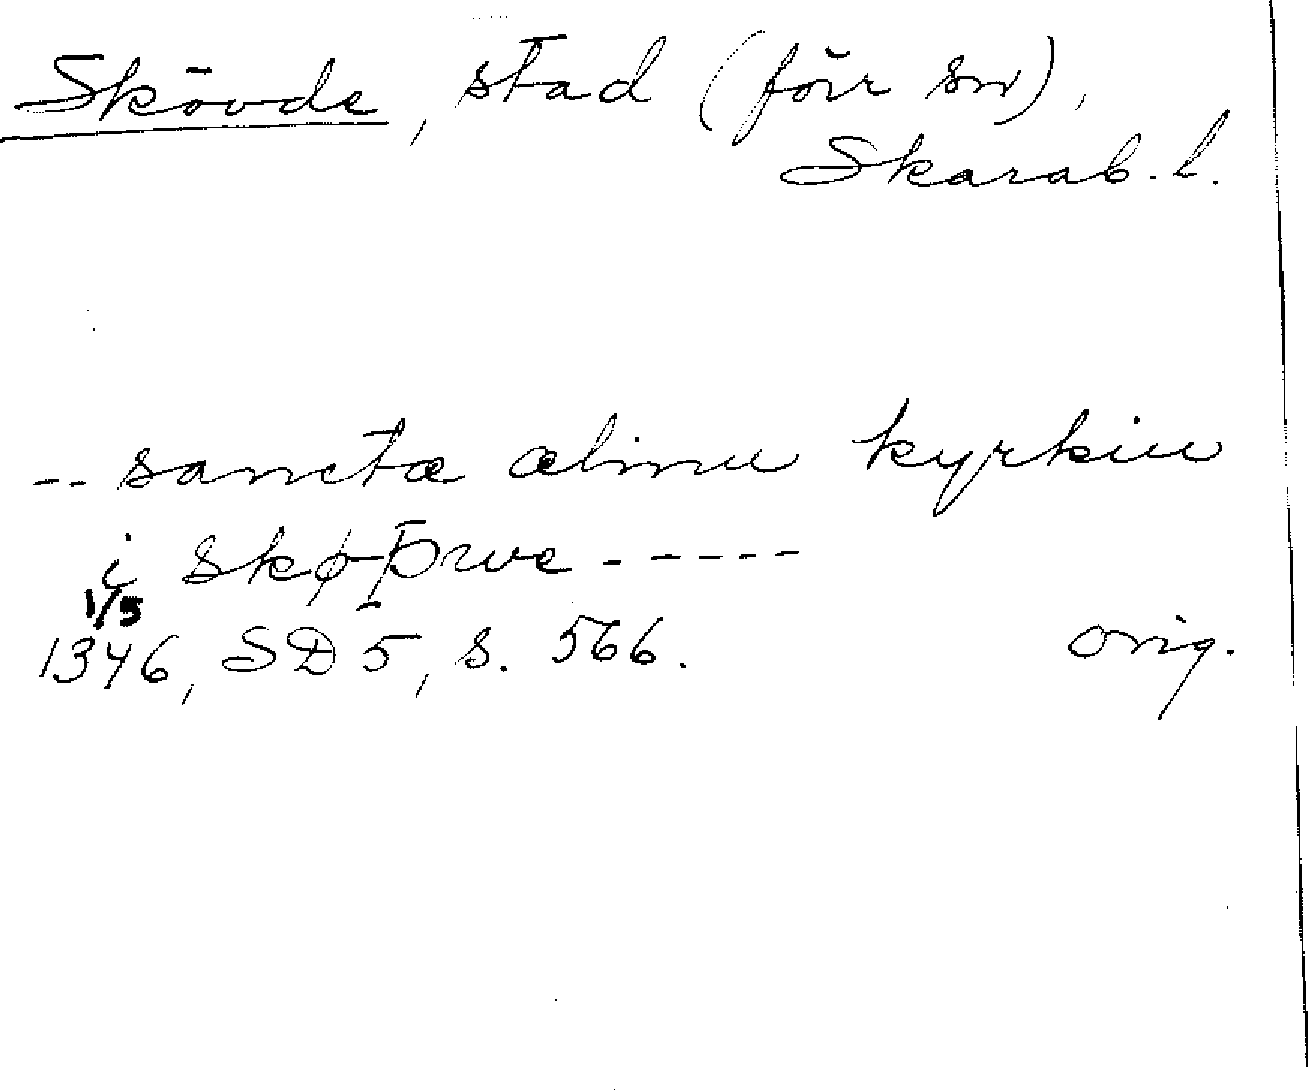 Skövde, stad (förr sn),
Skarab. l.
-- sancta ælinu kyrkiu
i skøþrwe - - - - -
1/5
1346, SD 5, s. 566. orig.